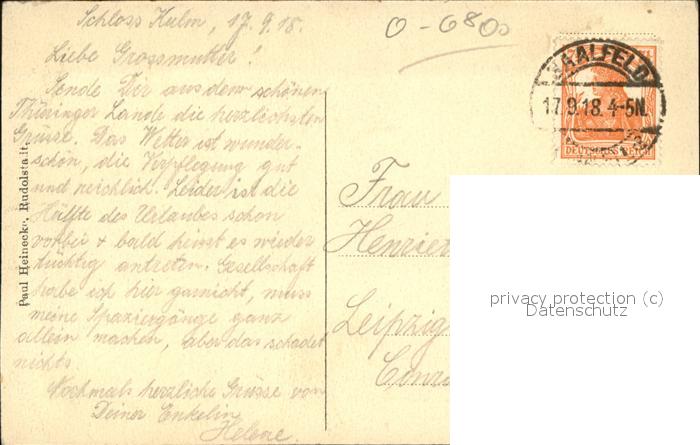 Schloss Kulm, 17.9.18.
Liebe Grossmutter!
Sende Dir aus dem schönen
Thüringer Lande die herzlichsten
Grüsse. Das Wetter ist wunder-
schön, die Verpflegung gut
und reichlich. Leider ist die
Hälfte des Urlaubes schon
vorbei + bald heisst es wieder
tüchtig antreten. Gesellschaft
habe ich hier garnicht, muss
meine Spaziergänge ganz
allein machen, aber das schadet
nichts.
Nochmals herzliche Grüsse von
Deiner Enkelin
Helene.
Paul Heinecke, Rudolstadt.
0-680
SAALFELD
17.9.18. 4-5N.
DEUTSCHES REICH
Frau
Leipzig
privacy protection (c)
Datenschutz